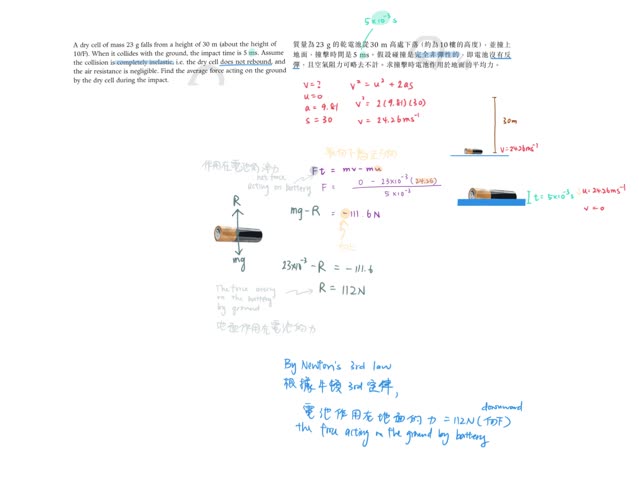 5×10⁻³s
A dry cell of mass 23 g falls from a height of 30 m (about the height of
10/F). When it collides with the ground, the impact time is 5 ms. Assume
the collision is completely inelastic, i.e. the dry cell does not rebound, and
the air resistance is negligible. Find the average force acting on the ground
by the dry cell during the impact.
質量為 23 g 的乾電池從 30 m 高處下落 (約為 10 樓的高度)，並撞上
地面，撞擊時間是 5 ms。假設碰撞是完全非彈性的，即電池沒有反
彈，且空氣阻力可略去不計。求撞擊時電池作用於地面的平均力。
v=? v² = u² + 2as
u=0 v² = 2(9.81)(30)
a = 9.81 v = 24.26ms⁻¹
s = 30
30m
v=24.26ms⁻¹
t = 5×10⁻³s
u=24.26ms⁻¹
v=0
作用在電池的淨力
net force
acting on battery
Ft = mv-mu
F = 0 - 23×10⁻³(24.26) / 5×10⁻³
R
mg
mg-R = -111.6N
23×10⁻³-R = -111.6
R = 112N
The force acting
on the battery
by ground
地面作用在電池的力
By Newton's 3rd law
根據牛頓 3rd 定律,
電池作用在地面的力 = 112N (向下)
downward
the force acting on the ground by battery